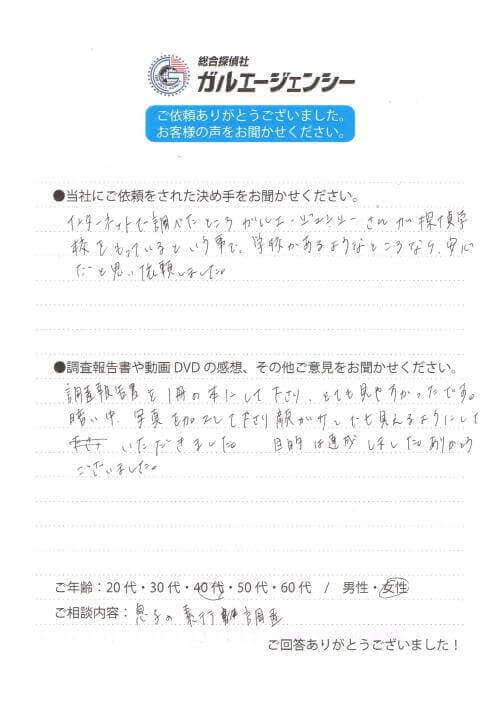 総合探偵社
ガルエージェンシー
ご依頼ありがとうございました。
お客様の声をお聞かせください。
●当社にご依頼をされた決め手をお聞かせください。
インターネットで調べたところガルエージェンシーさんが探偵学
校をもっているという事で、学校があるようなところなら、安心
だと思い依頼しました。
●調査報告書や動画DVDの感想、その他ご意見をお聞かせください。
調査報告書を1冊の本にして下さり、とても見やすかったです。
暗い中、写真を加工して下さり顔が少しでも見えるようにして
いただきました。 目的は達成しました。ありがとう
ございました。
ご年齢：20代・30代・40代・50代・60代 / 男性・女性
ご相談内容：息子の素行調査
ご回答ありがとうございました！